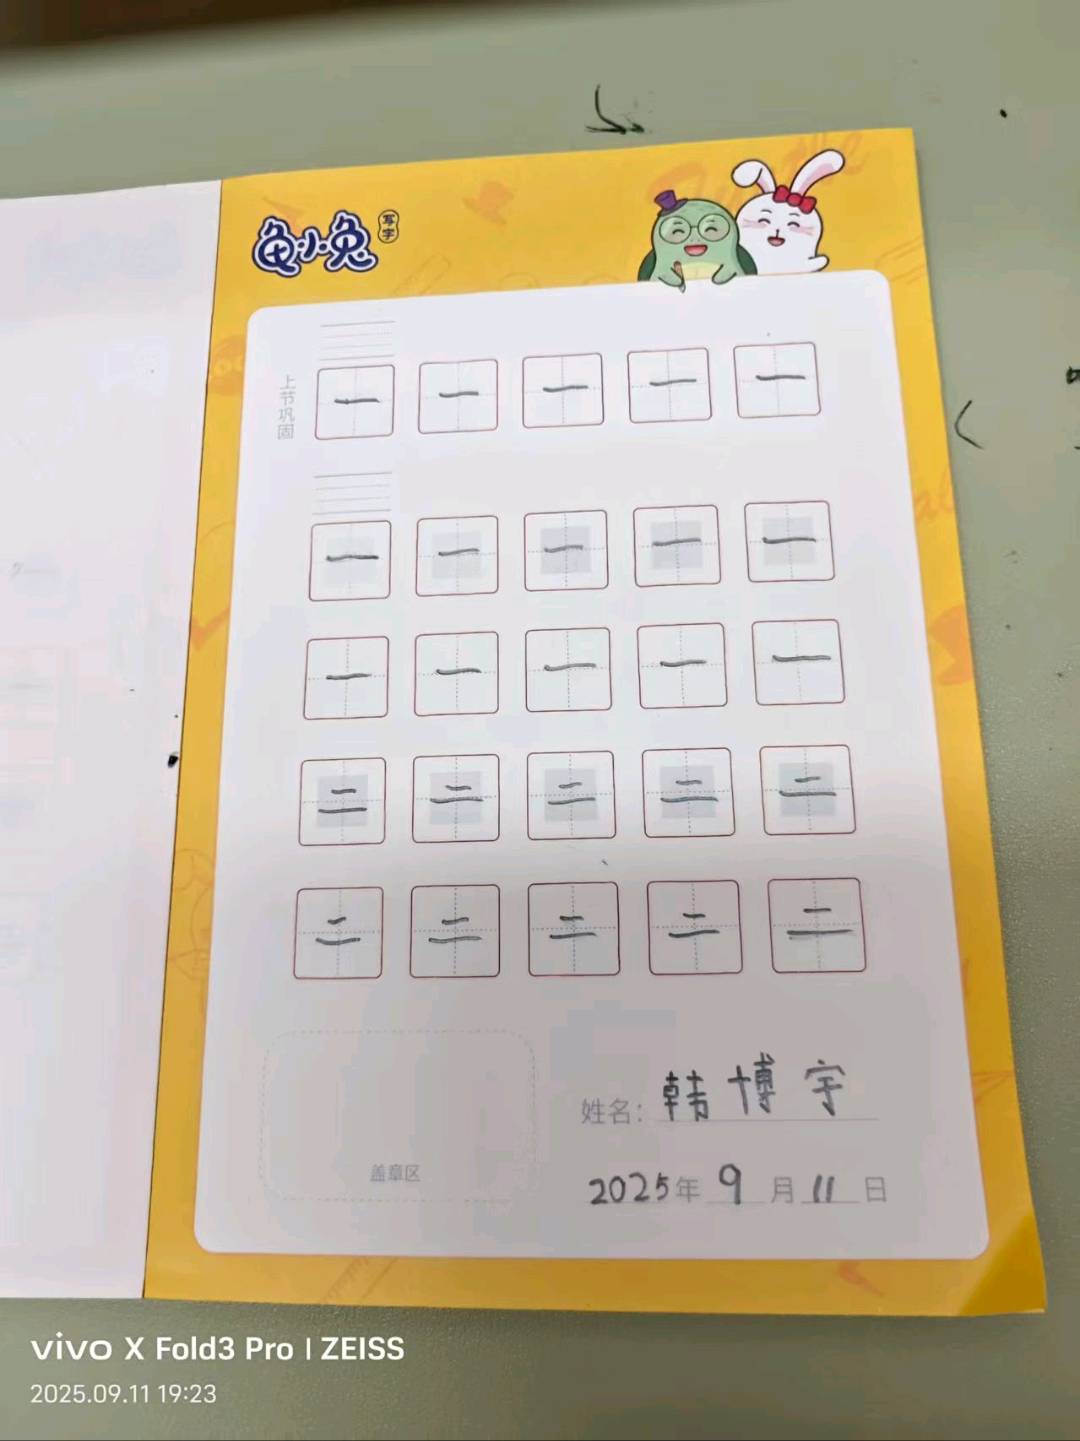 龟小兔 写字
上节巩固
一 一 一 一 一
一 一 一 一 一
一 一 一 一 一
二 二 二 二 二
二 二 二 二 二
姓名: 韩博宇
盖章区
2025年 9 月 11 日
vivo X Fold3 Pro | ZEISS
2025.09.11 19:23